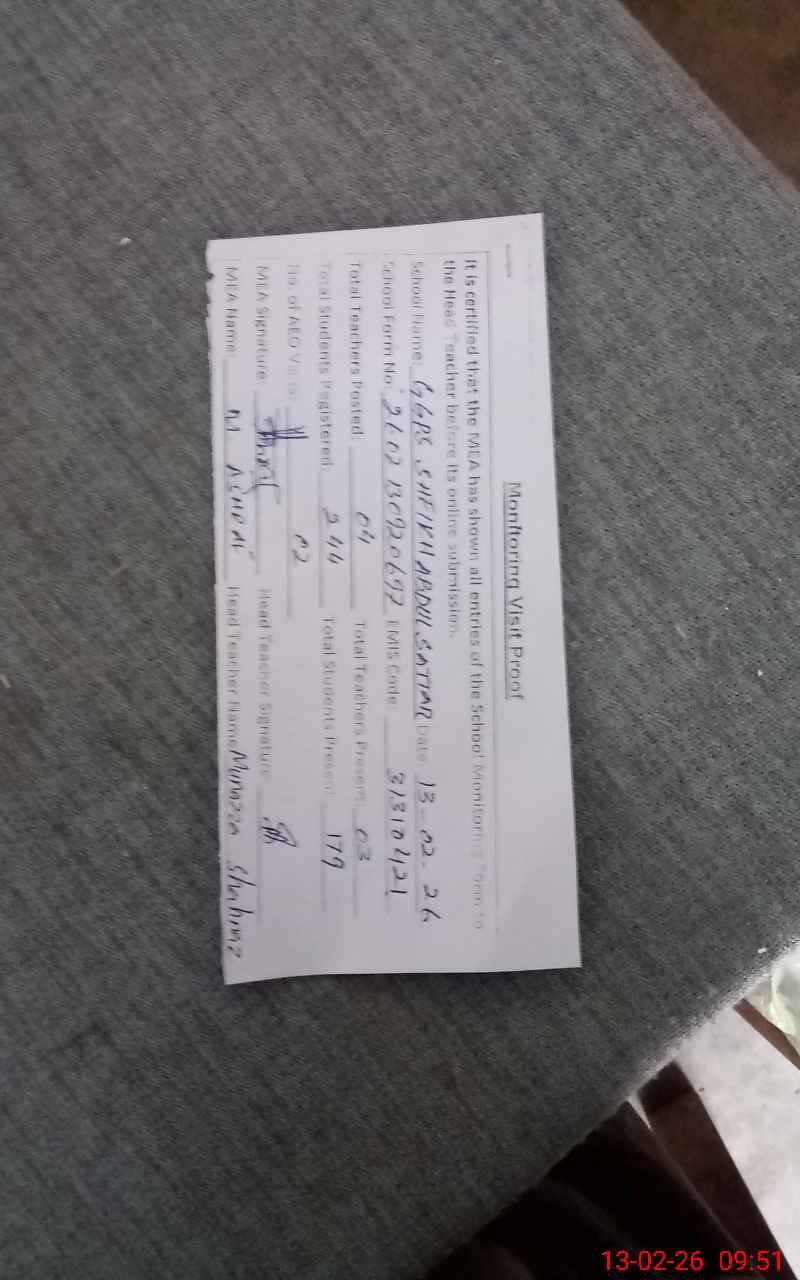 Monitoring Visit Proof
It is certified that the MEA has shown all entries of the School Monitoring Form to
the Head Teacher before its online submission.
School Name: GGPS SHEIKH ABDUL SATTAR Date: 13-02-26
School Form No: 260213092069 EMIS Code: 31310421
Total Teachers Posted: 04 Total Teachers Present: 03
Total Students Registered: 244 Total Students Present: 179
No. of AEO Visits: 02
MEA Signature: Head Teacher Signature:
MEA Name: M ASHRAF Head Teacher Name: Munazza Shahnaz
13-02-26 09:51